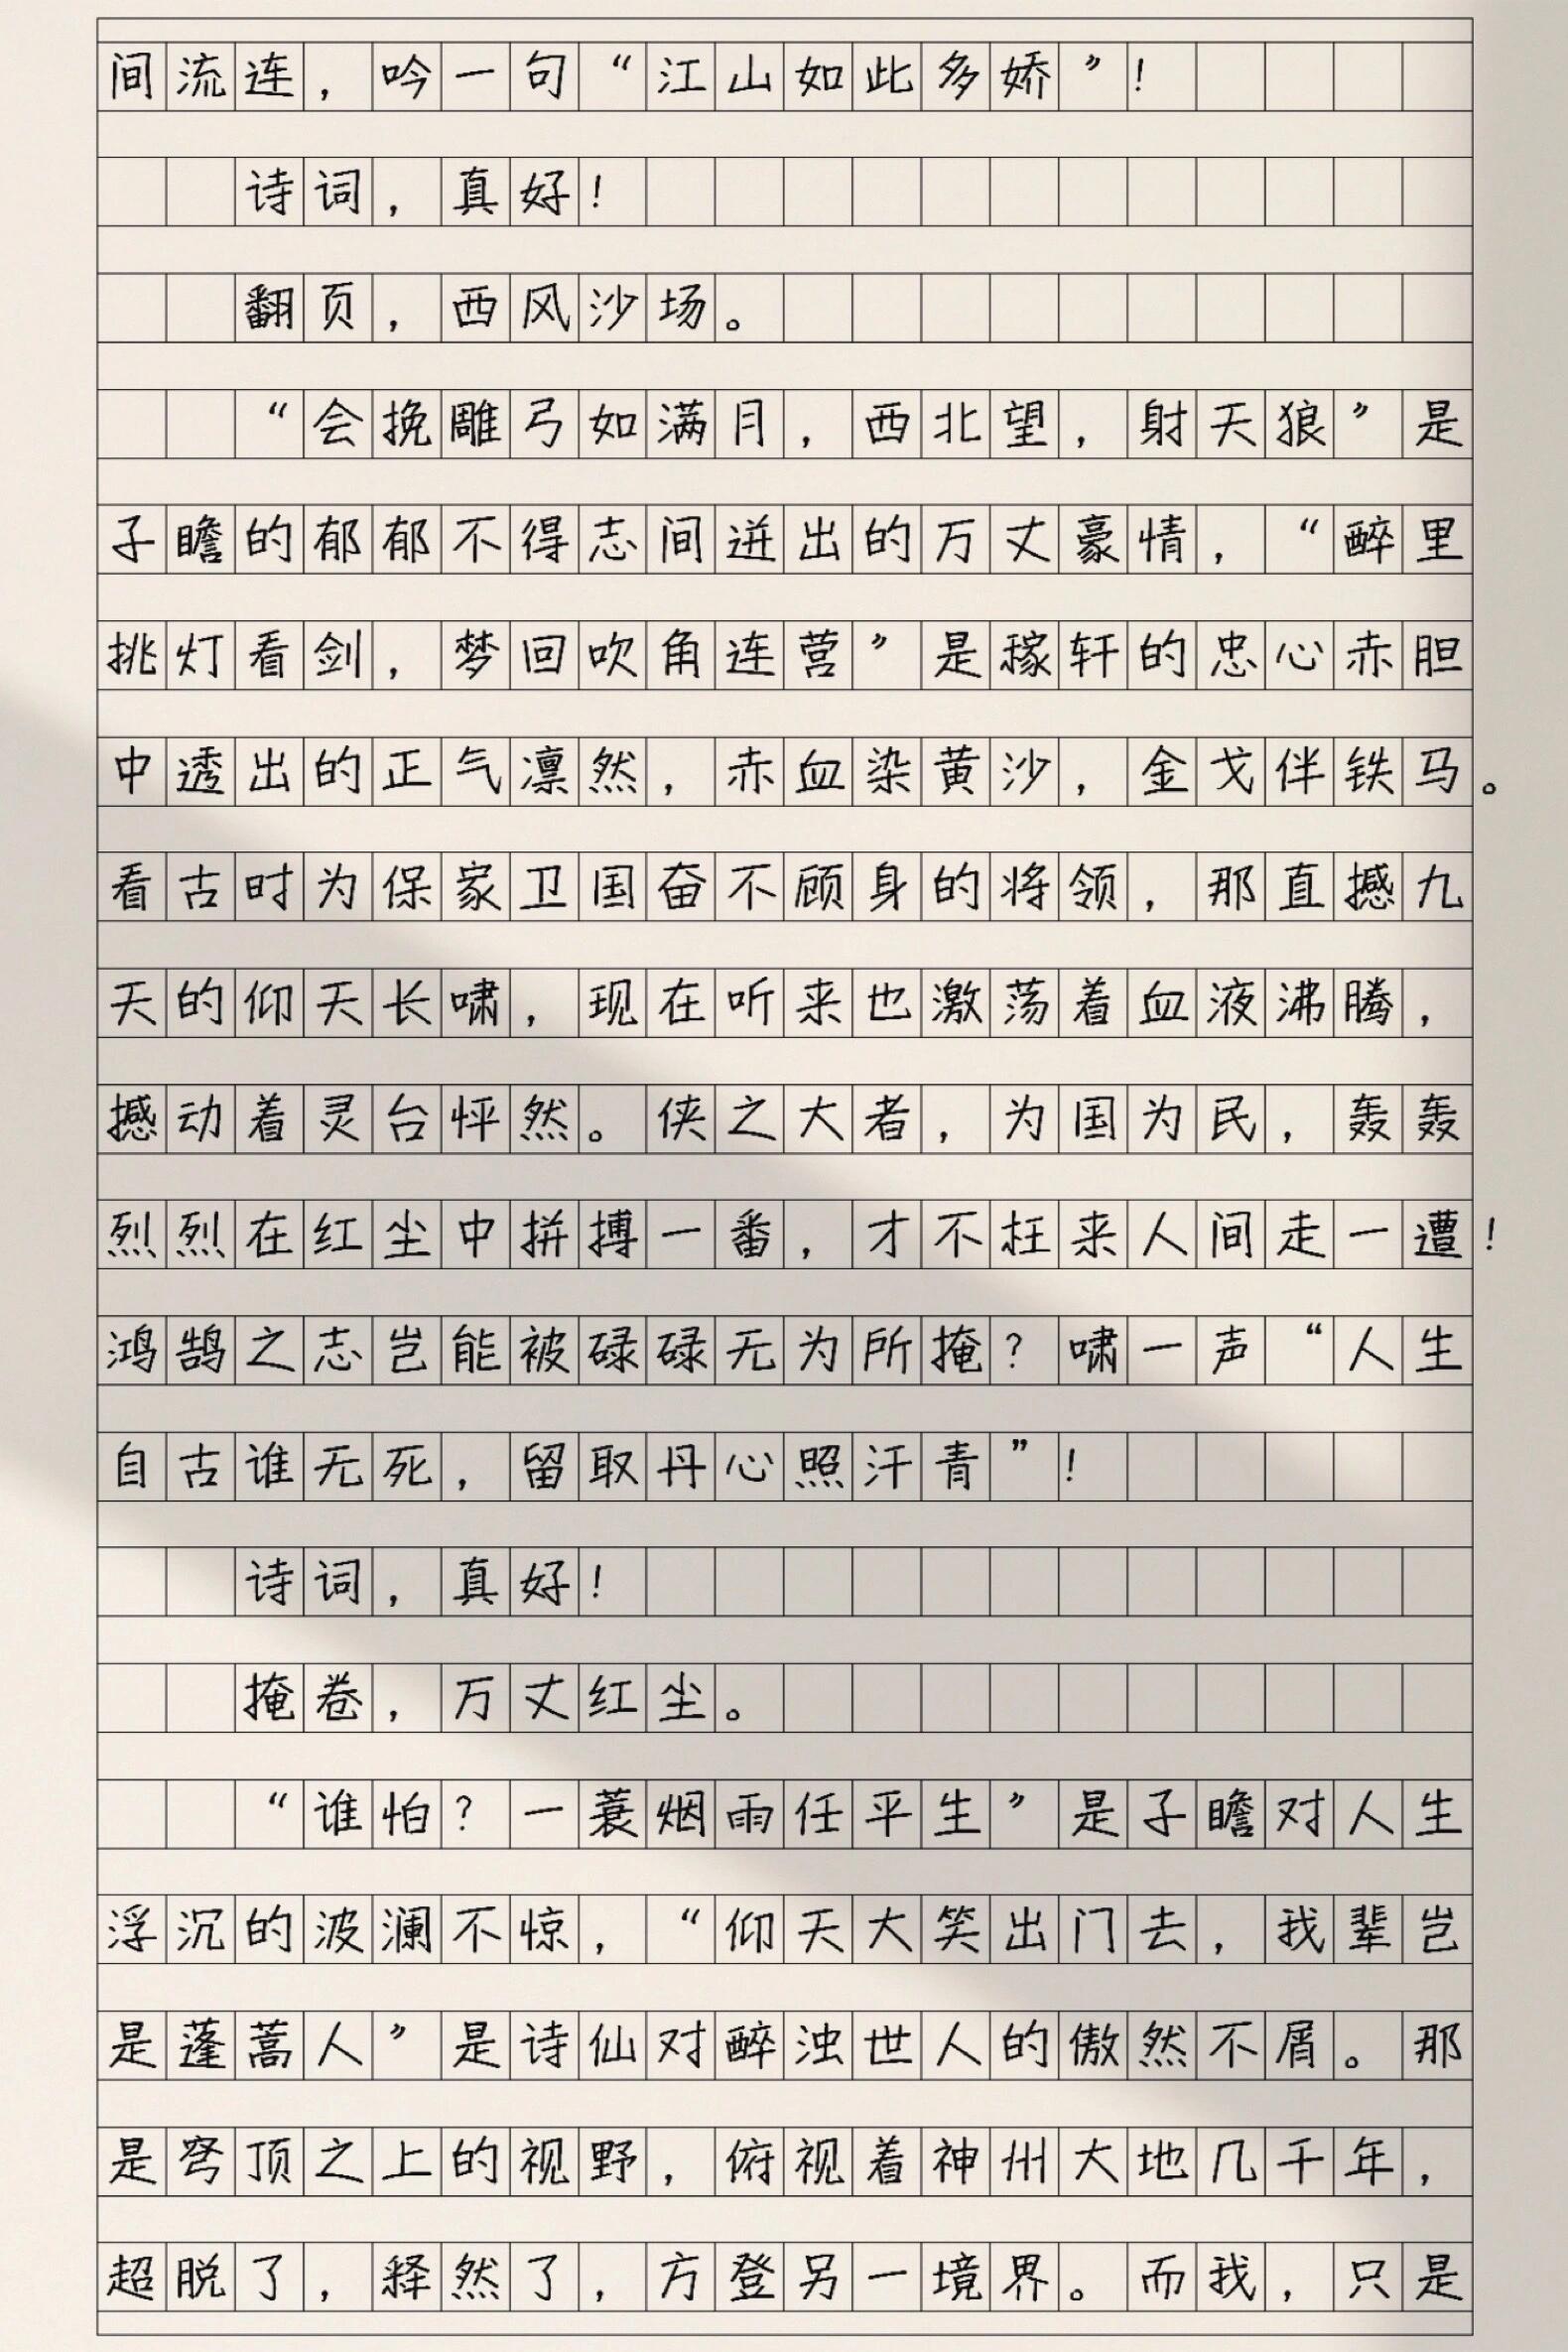 间流连，吟一句“江山如此多娇”！
诗词，真好！
翻页，西风沙场。
“会挽雕弓如满月，西北望，射天狼”是
子瞻的郁郁不得志间迸出的万丈豪情，“醉里
挑灯看剑，梦回吹角连营”是稼轩的忠心赤胆
中透出的正气凛然，赤血染黄沙，金戈伴铁马。
看古时为保家卫国奋不顾身的将领，那直撼九
天的仰天长啸，现在听来也激荡着血液沸腾，
撼动着灵台怦然。侠之大者，为国为民，轰轰
烈烈在红尘中拼搏一番，才不枉来人间走一遭！
鸿鹄之志岂能被碌碌无为所掩？啸一声“人生
自古谁无死，留取丹心照汗青”！
诗词，真好！
掩卷，万丈红尘。
“谁怕？一蓑烟雨任平生”是子瞻对人生
浮沉的波澜不惊，“仰天大笑出门去，我辈岂
是蓬蒿人”是诗仙对醉浊世人的傲然不屑。那
是穹顶之上的视野，俯视着神州大地几千年，
超脱了，释然了，方登另一境界。而我，只是